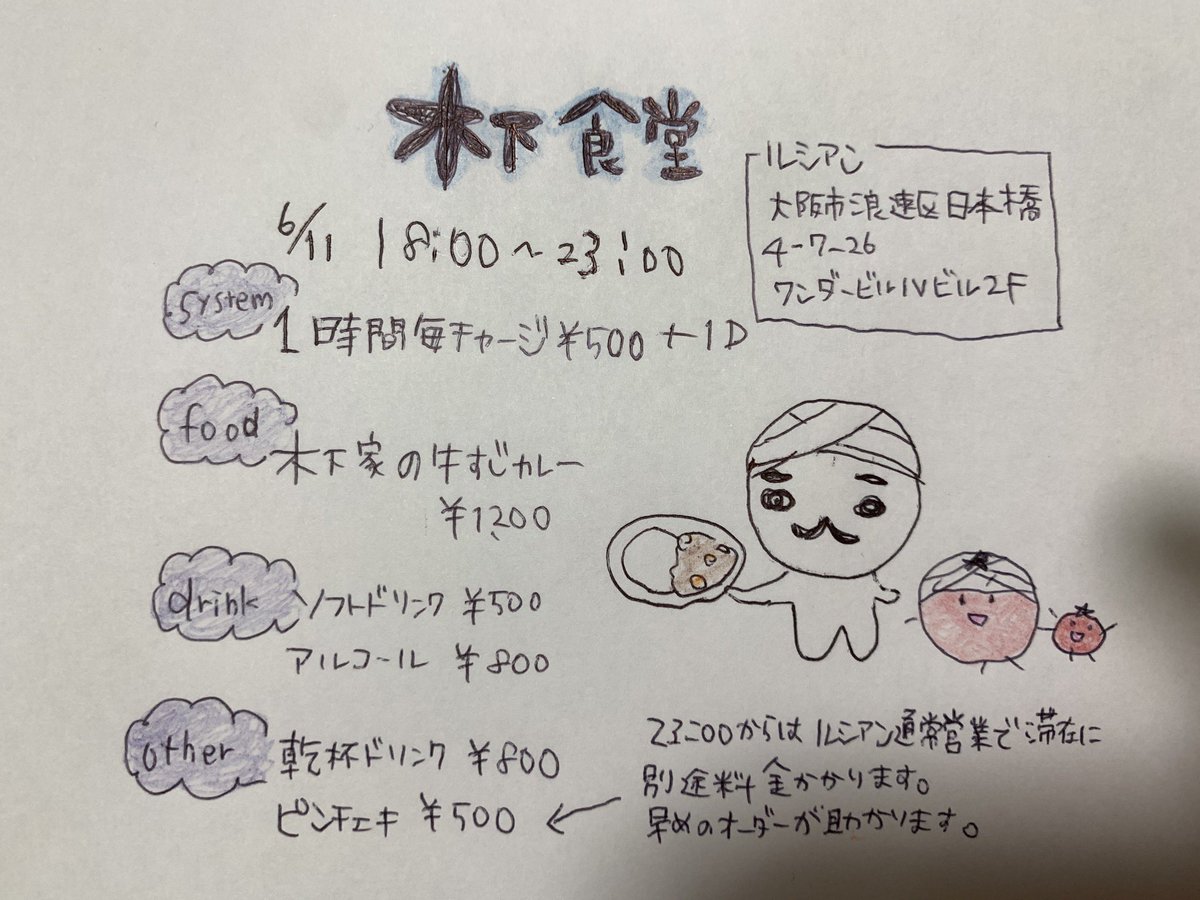 木下食堂
6/11 18:00〜23:00
ルシアン
大阪市浪速区日本橋
4-7-26
ワンダービルIVビル2F
system
1時間毎チャージ¥500+1D
food
木下家の牛すじカレー
¥1200
drink
ソフトドリンク ¥500
アルコール ¥800
other
乾杯ドリンク ¥800
ピンチェキ ¥500
23:00からはルシアン通常営業で滞在に
別途料金かかります。
早めのオーダーが助かります。